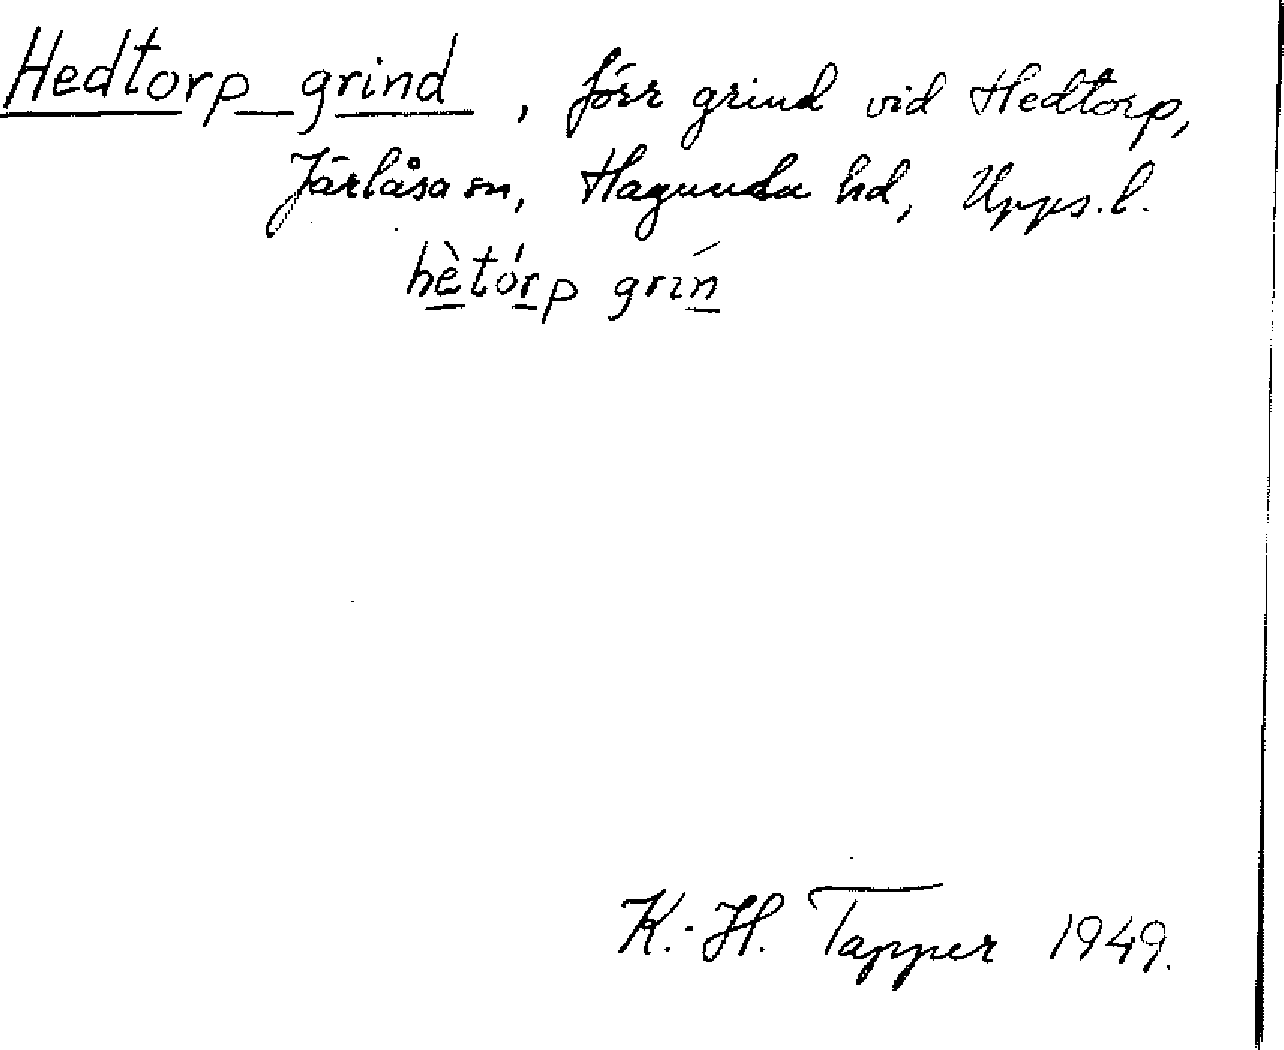 Hedtorp grind, förr grind vid Hedtorp,
Järlåsa sn, Hagunda hd, Upps. l.
hètórp grín
K.-H. Tapper 1949.